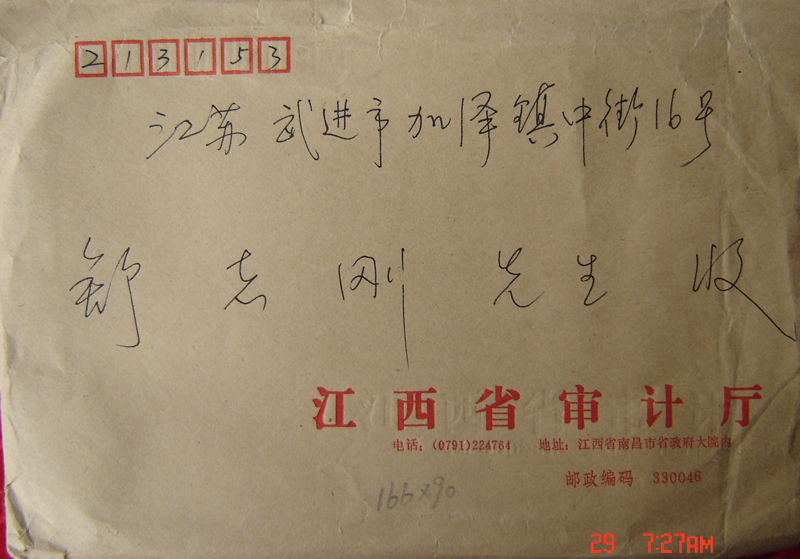 213153
江苏 武进市加泽镇中街16号
舒志刚 先生 收
江西省审计厅
电话：(0791)224764 地址：江西省南昌市省政府大院内
邮政编码 330046
166×90
29 7:27AM